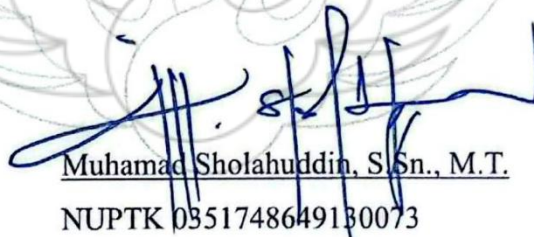 Muhamad Sholahuddin, S.Sn., M.T.
NUPTK 0351748649130073